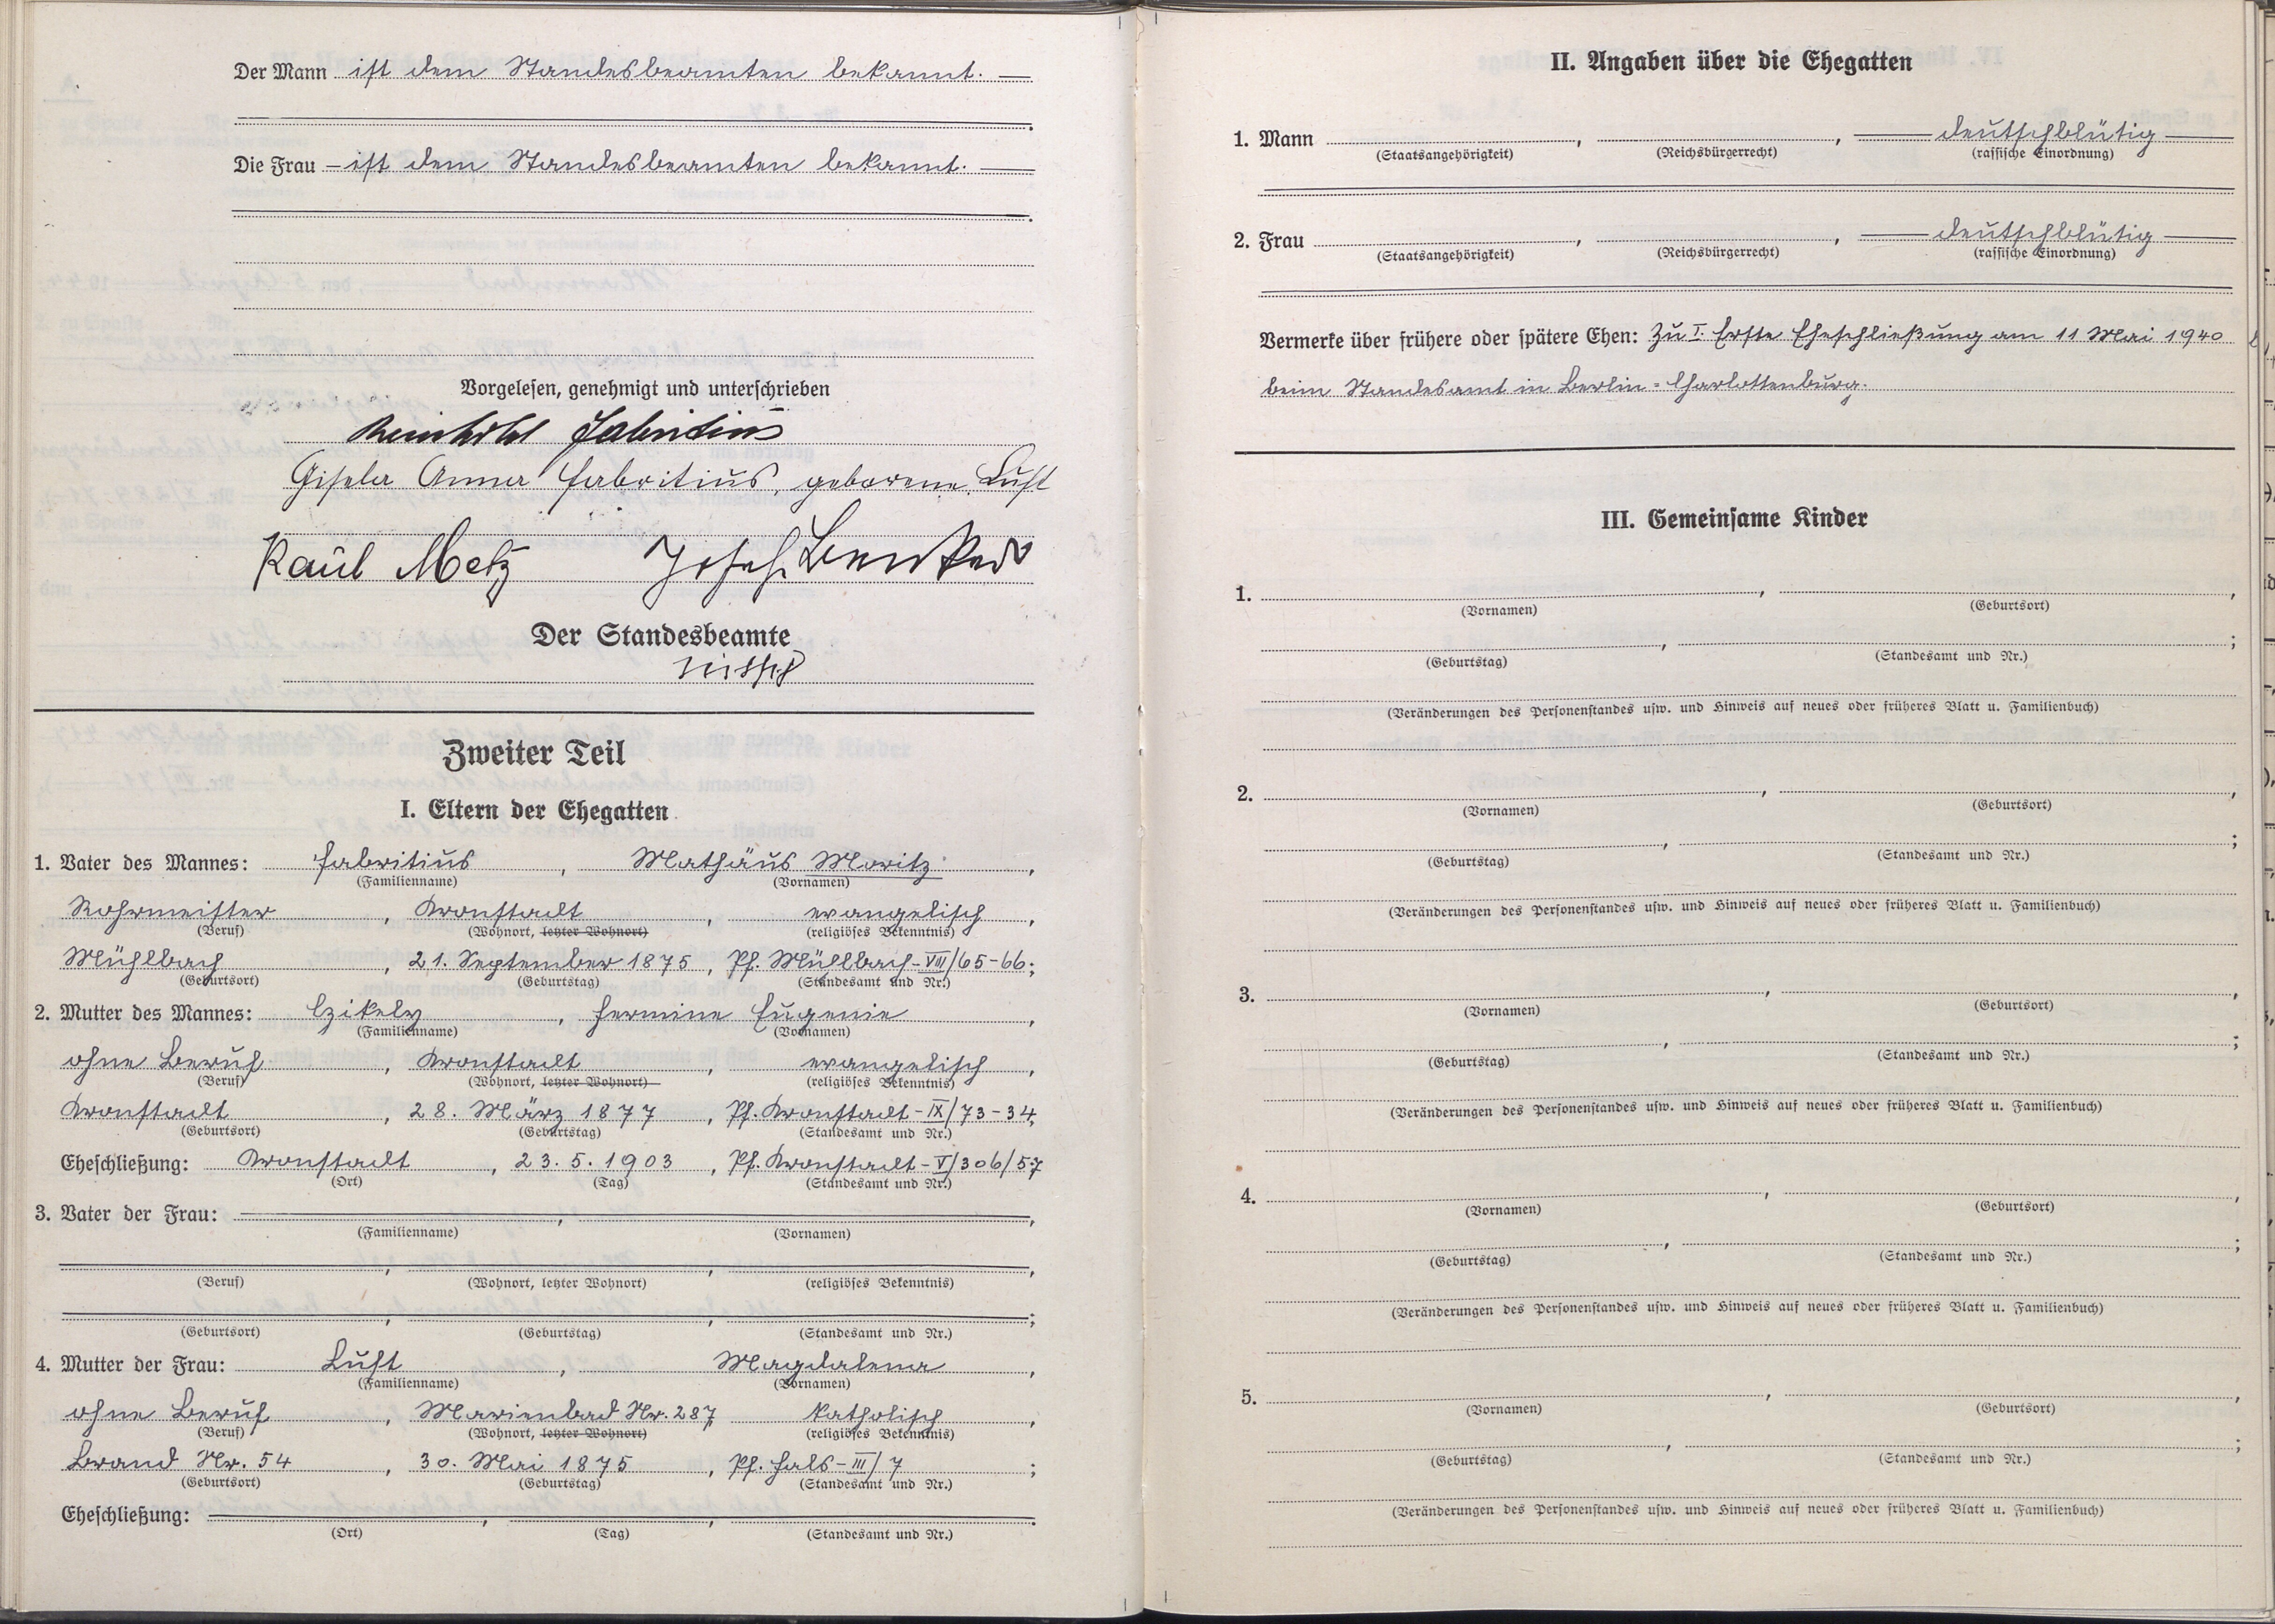 Der Mann ist dem Standesbeamten bekannt.
Die Frau ist dem Standesbeamten bekannt.
Vorgelesen, genehmigt und unterschrieben
Reinhold Fabritius
Gisela Anna Fabritius, geborene Luft
Paul Metz Josef
Der Standesbeamte
Zweiter Teil
I. Eltern der Ehegatten
1. Vater des Mannes: Fabritius, Mathäus Moritz,
(Familienname) (Vornamen)
Rohrmeister, Kronstadt, evangelisch,
(Beruf) (Wohnort, letzter Wohnort) (religiöses Bekenntnis)
Mühlbach, 21. September 1875, Pf. Mühlbach-VIII/65-66;
(Geburtsort) (Geburtstag) (Standesamt und Nr.)
2. Mutter des Mannes: Czikely, Hermine Eugenie,
(Familienname) (Vornamen)
ohne Beruf, Kronstadt, evangelisch,
(Beruf) (Wohnort, letzter Wohnort) (religiöses Bekenntnis)
Kronstadt, 28. März 1877, Pf. Kronstadt-IX/73-34;
(Geburtsort) (Geburtstag) (Standesamt und Nr.)
Eheschließung: Kronstadt, 23.5.1903, Pf. Kronstadt-V/306/57
(Ort) (Tag) (Standesamt und Nr.)
3. Vater der Frau: , ,
(Familienname) (Vornamen)
(Beruf) (Wohnort, letzter Wohnort) (religiöses Bekenntnis)
(Geburtsort) (Geburtstag) (Standesamt und Nr.)
4. Mutter der Frau: Luft, Magdalena,
(Familienname) (Vornamen)
ohne Beruf, Marienbad Nr. 287, katholisch,
(Beruf) (Wohnort, letzter Wohnort) (religiöses Bekenntnis)
Brand Nr. 54, 30. Mai 1875, Pf. Hals-III/7;
(Geburtsort) (Geburtstag) (Standesamt und Nr.)
Eheschließung: , , .
(Ort) (Tag) (Standesamt und Nr.)
II. Angaben über die Ehegatten
1. Mann , , deutschblütig
(Staatsangehörigkeit) (Reichsbürgerrecht) (rassische Einordnung)
2. Frau , , deutschblütig
(Staatsangehörigkeit) (Reichsbürgerrecht) (rassische Einordnung)
Vermerke über frühere oder spätere Ehen: Zu I. Erste Eheschließung am 11 Mai 1940
beim Standesamt in Berlin=Charlottenburg.
III. Gemeinsame Kinder
1. , ,
(Vornamen) (Geburtsort)
(Geburtstag) (Standesamt und Nr.)
(Veränderungen des Personenstandes usw. und Hinweis auf neues oder früheres Blatt u. Familienbuch)
2. , ,
(Vornamen) (Geburtsort)
(Geburtstag) (Standesamt und Nr.)
(Veränderungen des Personenstandes usw. und Hinweis auf neues oder früheres Blatt u. Familienbuch)
3. , ,
(Vornamen) (Geburtsort)
(Geburtstag) (Standesamt und Nr.)
(Veränderungen des Personenstandes usw. und Hinweis auf neues oder früheres Blatt u. Familienbuch)
4. , ,
(Vornamen) (Geburtsort)
(Geburtstag) (Standesamt und Nr.)
(Veränderungen des Personenstandes usw. und Hinweis auf neues oder früheres Blatt u. Familienbuch)
5. , ,
(Vornamen) (Geburtsort)
(Geburtstag) (Standesamt und Nr.)
(Veränderungen des Personenstandes usw. und Hinweis auf neues oder früheres Blatt u. Familienbuch)